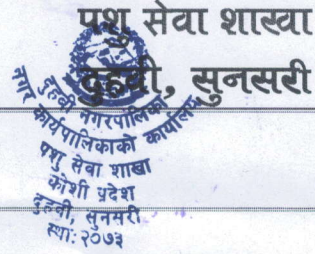 पशु सेवा शाखा
दुहवी, सुनसरी
दुहवी नगरपालिका
नगर कार्यपालिकाको कार्यालय
पशु सेवा शाखा
कोशी प्रदेश
दुहवी, सुनसरी
स्था: २०७३